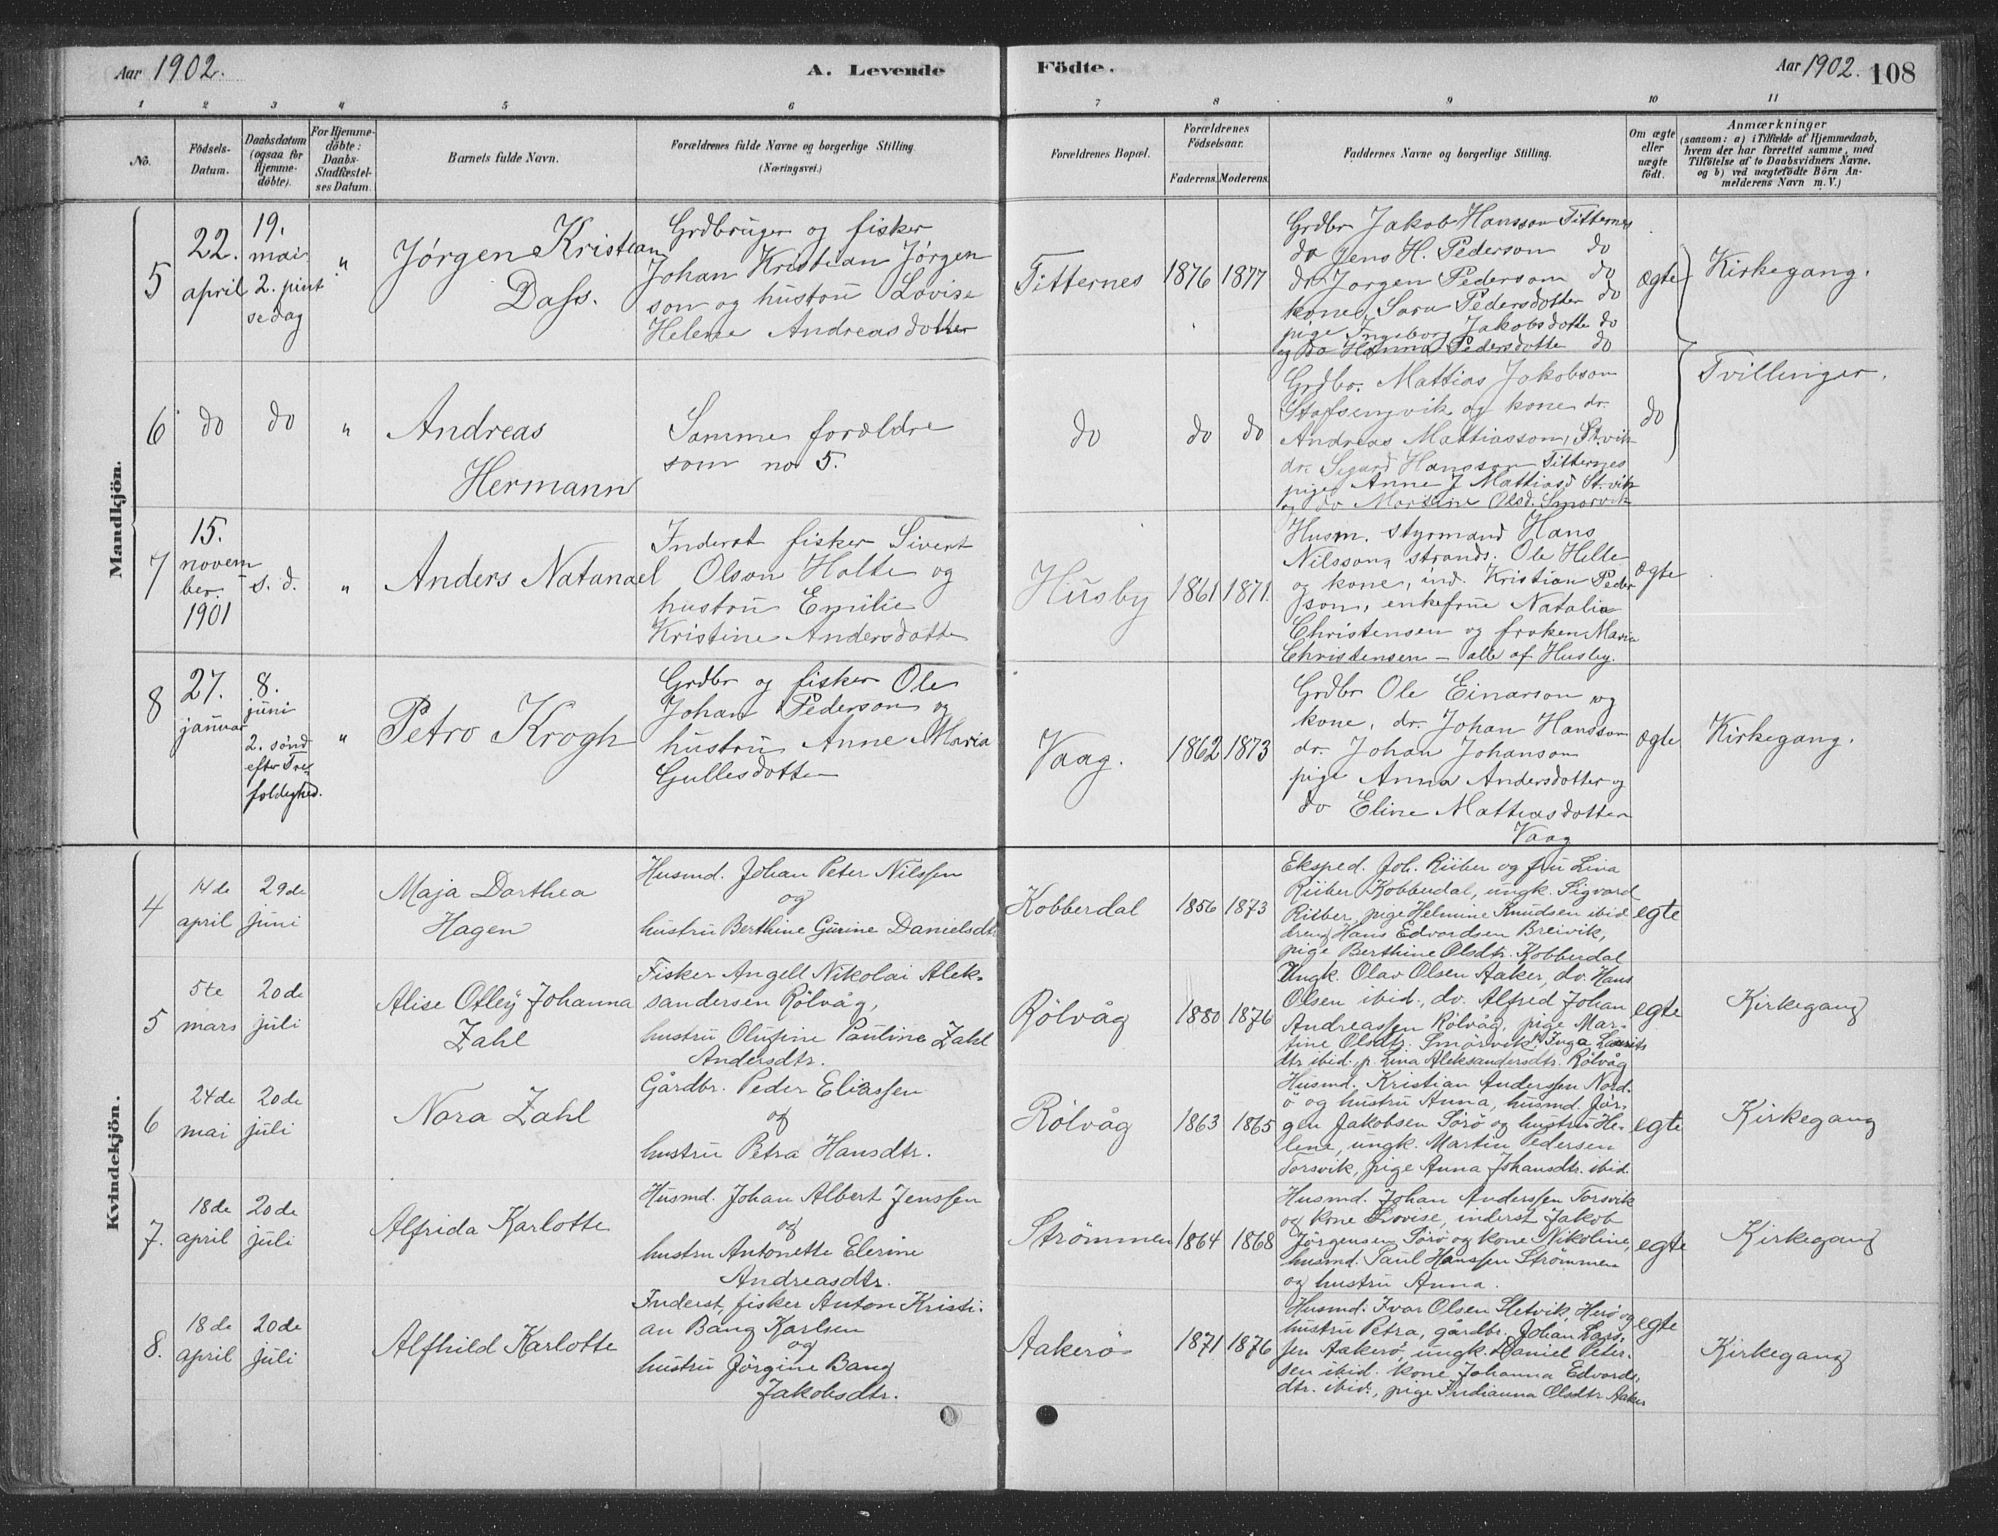 Aar 1902.
A. Levende Födte.
Aar 1902. 108
1 2 3 4 5 6 7 8 9 10 11
No.
Födsels-
Datum.
Daabsdatum
(ogsaa for
Hjemme-
döbte).
For Hjemme-
döbte:
Daabs-
Stadfæstel-
ses Datum.
Barnets fulde Navn.
Forældrenes fulde Navne og borgerlige Stilling
(Næringsvei.)
Forældrenes Bopæl.
Forældrenes
Födselsaar.
Faderens. Moderens.
Faddernes Navne og borgerlige Stilling.
Om ægte
eller
uægte
födt.
Anmærkninger
(saasom: a) i Tilfælde af Hjemmedaab,
hvem der har forrettet samme, med
Tilföielse af to Daabsvidners Navne.
og b) ved uægtefödte Börn An-
melderens Navn m. V.)
Mandkjön.
5
22.
april
19.
mai
2. pint
sedag
"
Jørgen Kristian
Dass.
Grdbruger og fisker
Johan Kristian Jørgen
son og hustru Lovise
Helene Andreasdotter
Titternes
1876
1877
Grdbr Jakob Hansson Titternes
do Jens H. Pederson do
do Jorgen Pederson do
kone Sara Pedersdotter do
pige Ingeborg Jakobsdotte do
og do Hanna Pedersdotte do
ægte
Kirkegang.
6
do
do
"
Andreas
Hermann
Samme forældre
som no 5.
do
do
do
Grdbr. Mattias Jakobson
Stafsengvik og kone dr.
Andreas Mattiasson, St.vik
dr. Sigurd Hansson Titternes
pige Anne J Mattiasd St.vik
og do Marsine Olsd. Smorvik
do
Tvillinger.
7
15.
novem
ber.
1901
s. d.
"
Anders Natanael
Inderst fisker Sivert
Olson Holte og
hustru Emilie
Kristine Andersdotte
Husby
1861
1871.
Husm. styrmand Hans
Nilsson, strands. Ole Helte
og kone, ind. Kristian Peder
son, enkefrue Natalia
Christensen og froken Maria
Christensen – alle af Husby.
ægte
8
27.
januar
8.
juni
2. sønd
efter Tre
foldighed.
"
Petro Krogh
Grdbr og fisker Ole
Johan Pederson og
hustru Anne Maria
Gullesdotter
Vaag.
1862
1873
Grdbr Ole Einarson og
kone, dr. Johan Hansson
dr. Johan Johanson
pige Anna Andersdotter og
do Eline Mattiasdotter
Vaag
ægte
Kirkegang.
Kvindekjön.
4
14de
april
29de
juni
Maja Dorthea
Hagen
Husmd. Johan Peter Nilssen
og
hustru Berthine Gurine Danielsdtr
Kobberdal
1856
1873
Eksped. Joh. Riiber og fru Lina
Riiber Kobberdal, ungk. Sigvard
Riiber, pige Helmine Knudsen ibid
dreng Hans Edvardsen Breivik,
pige Berthine Olsdtr. Kobberdal
egte
5
5te
mars
20de
juli
Alise Otley Johanna
Zahl
Fisker Angell Nikolai Alek-
sandersen Rölvåg,
hustru Olufine Pauline Zahl
Andersdtr.
Rölvåg
1880
1876
Ungk. Olav Olsen Aaker, do. Hans
Olsen ibid., do. Alfred Johan
Andreassen Rölvåg, pige Mar-
tine Olsdtr. Smörvik, Inga Laurits
dtr ibid. p. Lina Aleksandersdtr. Rölvåg
egte
Kirkegang
6
24de
mai
20de
juli
Nora Zahl
Gårdbr. Peder Eliassen
og
hustru Petra Hansdtr.
Rölvåg
1863
1865
Husmd. Kristian Anderssen Nord-
ö og hustru Anna, husmd. Jör-
gen Jakobsen Sörö og hustru He-
lene, ungk. Martin Pedersen
Torsvik, pige Anna Johansdtr. ibid.
egte
Kirkegang
7.
18de
april
20de
juli
Alfrida Karlotte
Husmd. Johan Albert Jenssen
og
hustru Antonette Elerine
Andreasdtr.
Strömmen
1864
1868
Husmd. Johan Anderssen Torsvik
og kone Lovise, inderst Jakob
Jörgensen Sörö og kone Nikoline,
husmd. Paul Hanssen Strömmen
og hustru Anna.
egte
Kirkegang
8.
18de
april
20de
juli
Alfhild Karlotte
Inderst, fisker Anton Kristi-
an Bang Karlsen
og
hustru Jörgine Bang
Jakobsdtr.
Aakerö
1871
1876
Husmd. Ivar Olsen Sletvik, Herö og
hustru Petra, gårdbr. Johan Lars-
sen Aakerö, ungk. Daniel Peter-
sen ibid. kone Johanna Edvards-
dtr. ibid., pige Indianna Olsdtr Aaker
egte
Kirkegang